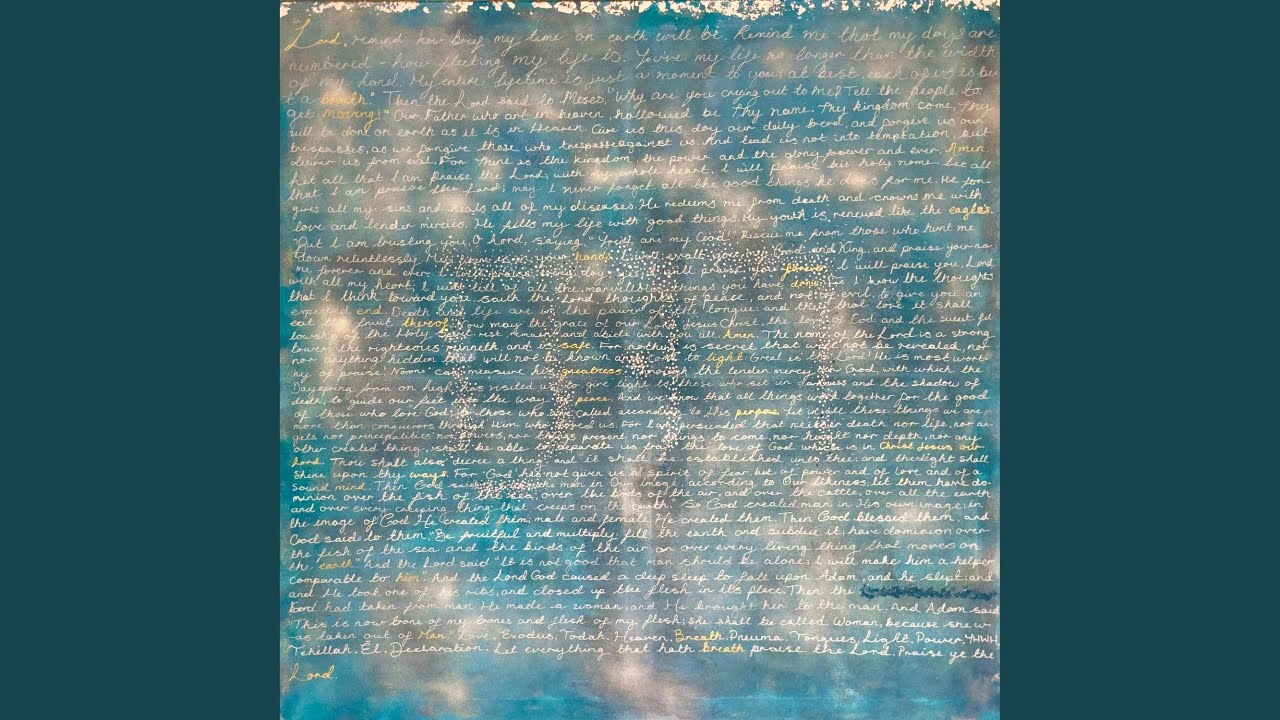 "Lord, remind how brief my time on earth will be. Remind me that my days are
numbered - how fleeting my life is. You've my life no longer than the width
of my hand. My entire lifetime is just a moment to you; at best, each of us is bu
t a breath." Then the Lord said to Moses, "Why are you crying out to me? Tell the people to
get moving!" Our Father who art in heaven, hallowed be Thy name. Thy kingdom come, Thy
will be done on earth as it is in Heaven. Give us this day our daily bread, and forgive us our
trespasses, as we forgive those who trespass against us. And lead us not into temptation, but
deliver us from evil. For thine is the kingdom, the power and the glory forever and ever, Amen.
Let all that I am praise the Lord; with my whole heart, I will praise his holy name. Let all
that I am praise the Lord; may I never forget all the good things he does for me. He for-
gives all my sins and heals all of my diseases. He redeems me from death and crowns me with
love and tender mercies. He fills my life with good things. My youth is renewed like the eagles.
But I am trusting you, O Lord, saying, "You are my God!" Rescue me from those who hunt me
down relentlessly. your hands. I will exalt you God and King, and praise your na
me forever and ever. I will praise you every day; I will praise you forever. I will praise you, Lord
with all my heart; I will tell of all the marvellous things you have done. I know the thoughts
that I think toward you, saith the Lord, thoughts of peace, and not of evil, to give you an
expected end. Death and life are in the power of the tongue and they that love it shall
eat the fruit thereof. Now may the grace of our Lord Jesus Christ, the love of God and the sweet fel
lowship of the Holy Spirit rest remain and abide with you all Amen. The name of the Lord is a strong
tower the righteous runneth, and is safe. For nothing is secret that will not be revealed, nor
nor anything hidden that will not be known and come to light. Great is the Lord! He is most wort-
hy of praise! No one can measure his greatness. Through the tender mercy of our God, with which the
Dayspring from on high has visited us; to give light to those who sit in darkness and the shadow of
death, to guide our feet into the way of peace. And we know that all things work together for the good
of those who love God, to those who are called according to His purpose. Yet in all these things we are
more than conquerors through Him who loved us. For I am persuaded that neither death nor life, nor an-
gels nor principalities nor powers, nor things present nor things to come, nor height nor depth, nor any
other created thing, shall be able to separate us from the love of God which is in Christ Jesus our
Lord. Thou shalt also decree a thing and it shall be established unto thee: and the light shall
shine upon thy ways. For God has not given us a spirit of fear, but of power and of love and of a
sound mind. Then God said, the man in Our image, according to Our likeness; let them have do-
minion over the fish of the sea, over the birds of the air, and over the cattle, over all the earth
and over every creeping thing that creeps on the earth." So God created man in His own image; in
the image of God He created them; male and female He created them. Then God blessed them, and
God said to them, "Be fruitful and multiply; fill the earth and subdue it; have dominion over
the fish of the sea and the birds of the air an over every living thing that moves on
the earth." And the Lord said "It is not good that man should be alone; I will make him a helper
comparable to him". And the Lord God caused a deep sleep to fall upon Adam, and he slept; and
and He took one of his ribs, and closed up the flesh in its place. Then the
Lord had taken from man He made a woman, and He brought her to the man. And Adam said
This is now bone of my bones and flesh of my flesh; she shall be called Woman, because she w
as taken out of Man." Love. Exodus. Todah. Heaven. Breath. Pneuma. Tongues. Light. Power. YHWH.
Tehillah. El. Declaration. Let everything that hath breath praise the Lord. Praise ye the
Lord.